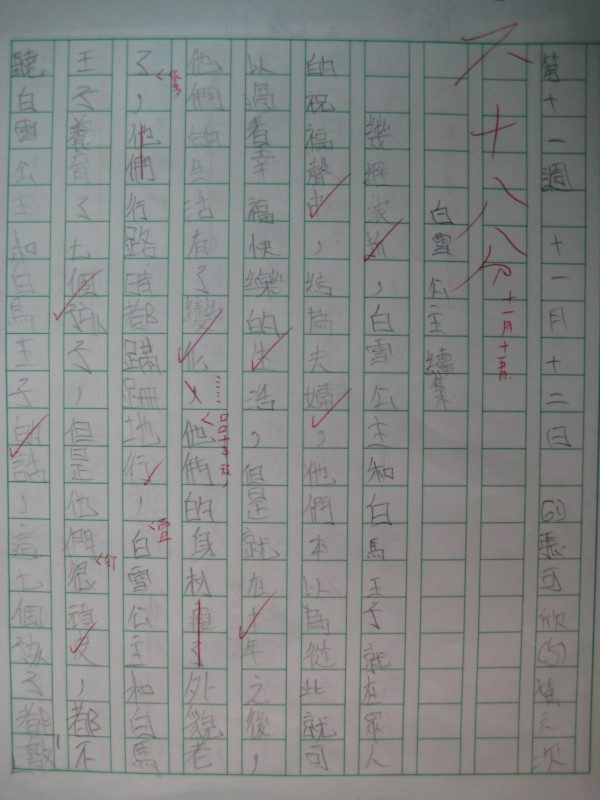 第十一週 十一月十二日
六十八分
十一月十五
白雪公主續集
，白雪公主和白馬王子就在眾人
的祝福聲中，結為夫婦，他們本以為從此就可
以過着幸福快樂的生活，但是就在十年之後，
他們的生活有了變化……他們的身材瘦了外貌老
了，他們行路時都蹣跚地行，白雪公主和白馬
王子養育了七個孩子，但是他們很頑皮，都不
聽白雪公主和白馬王子的話，這七個孩子都